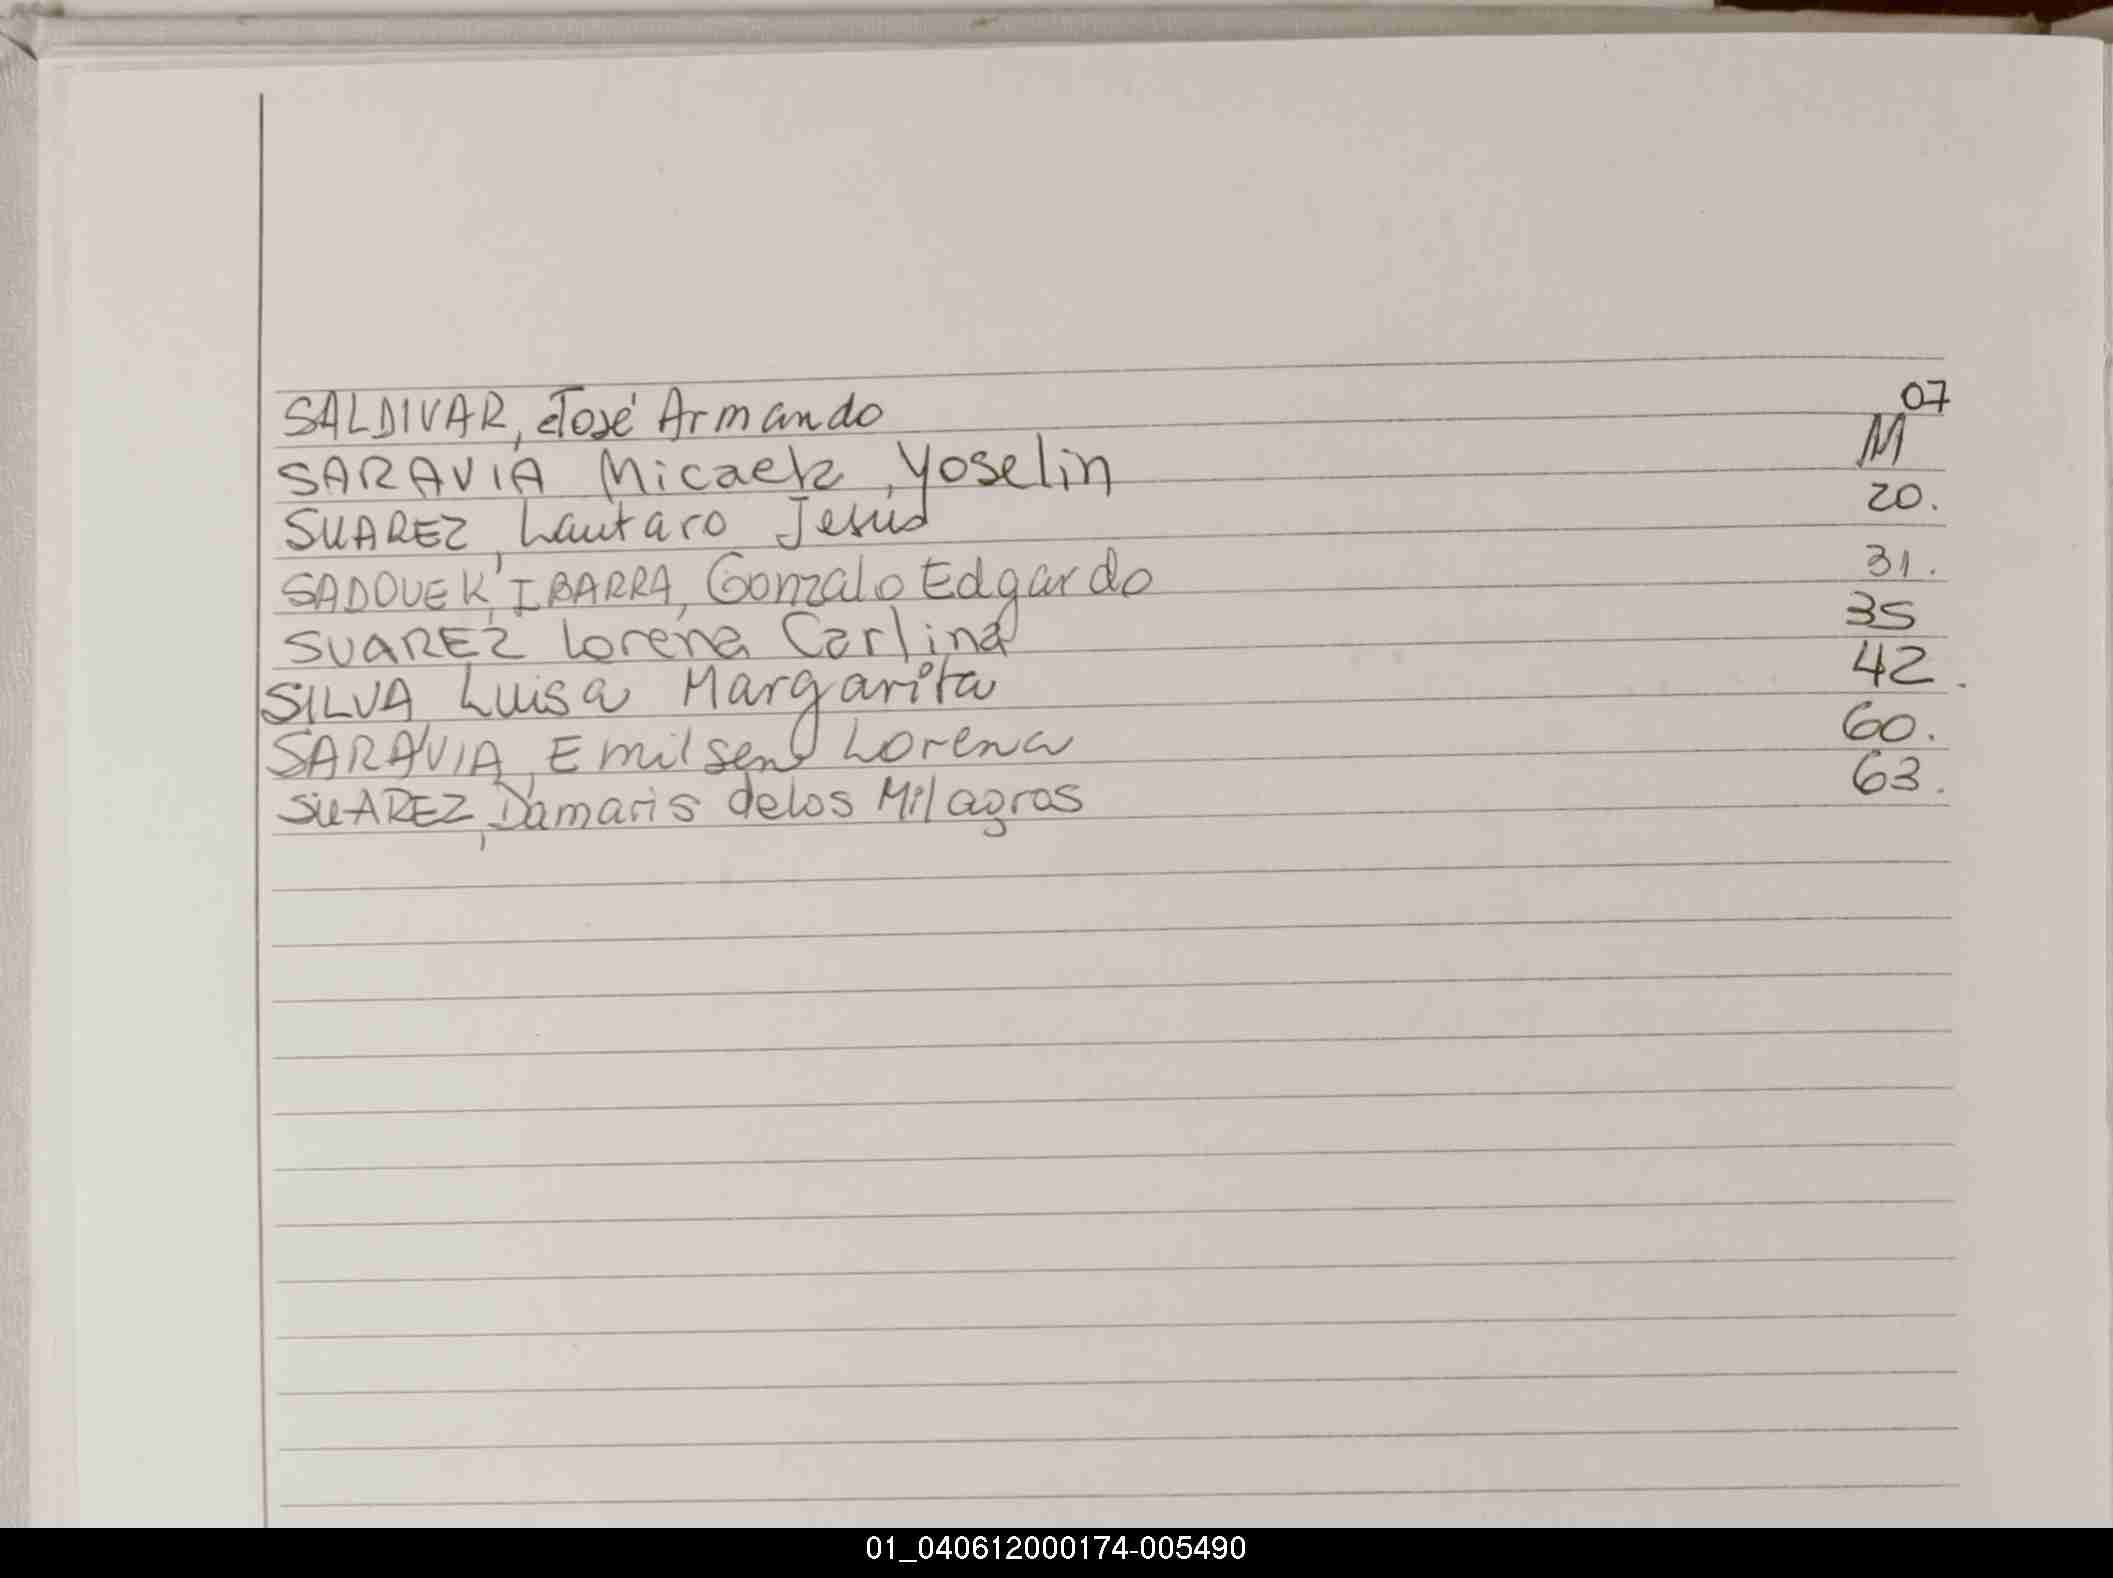 SALDIVAR, José Armando 07
SARAVIA Micaela, Yoselin 11
SUAREZ, Lautaro Jesús 20.
SADOUEK, IBARRA, Gonzalo Edgardo 31.
SUAREZ Lorena Carlina 35
SILVA Luisa Margarita 42.
SARAVIA, Emilsen Lorena 60.
SUAREZ, Damaris delos Milagros 63.
01_040612000174-005490